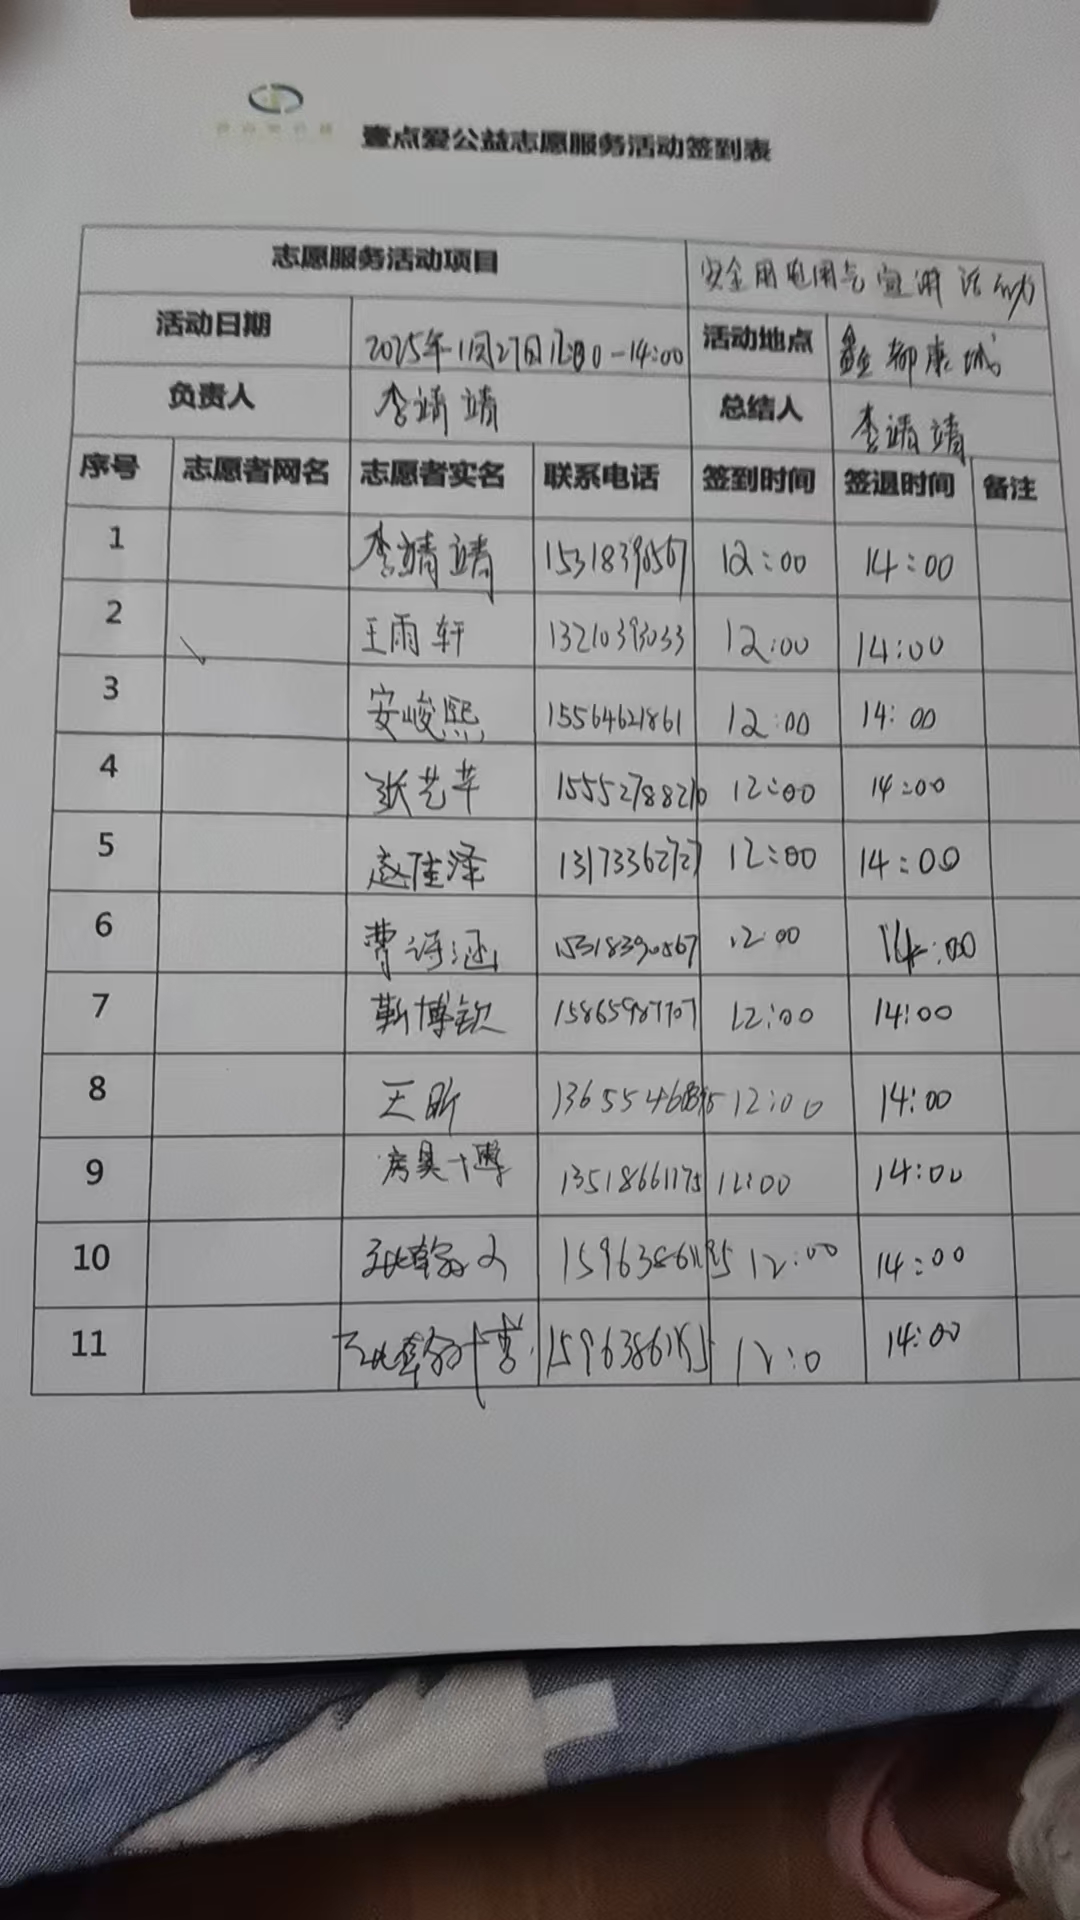 壹点爱公益志愿服务活动签到表
志愿服务活动项目 安全用电用气宣讲活动
活动日期 2025年11月27日12:00-14:00 活动地点 鑫都康城
负责人 李靖靖 总结人 李靖靖
序号 志愿者网名 志愿者实名 联系电话 签到时间 签退时间 备注
1 李靖靖 15318390567 12:00 14:00
2 王雨轩 13210393033 12:00 14:00
3 安峻熙 15564621861 12:00 14:00
4 张艺芊 12:00 14:00
5 赵佳泽 13173362727 12:00 14:00
6 曹诗涵 15318390567 12:00 14:00
7 靳博钦 15865987707 12:00 14:00
8 王昕 12:00 14:00
9 房昊博 13518661175 12:00 14:00
10 12:00 14:00
11 12:0 14:00